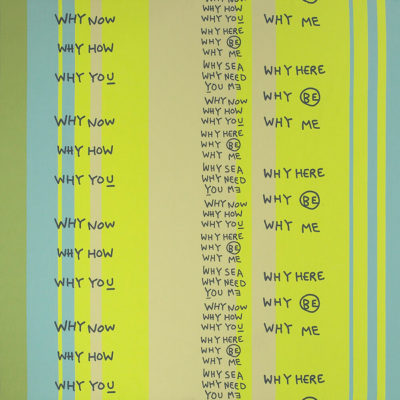 WHY NOW
WHY HOW
WHY YOU
WHY NOW
WHY HOW
WHY YOU
WHY NOW
WHY HOW
WHY YOU
WHY NOW
WHY HOW
WHY YOU
WHY NOW
WHY HOW
WHY YOU
WHY HERE
WHY BE
WHY ME
WHY SEA
WHY NEED
YOU ME
WHY NOW
WHY HOW
WHY YOU
WHY HERE
WHY BE
WHY ME
WHY SEA
WHY NEED
YOU ME
WHY NOW
WHY HOW
WHY YOU
WHY HERE
WHY BE
WHY ME
WHY SEA
WHY NEED
YOU ME
WHY NOW
WHY HOW
WHY YOU
WHY HERE
WHY BE
WHY ME
WHY SEA
WHY NEED
YOU ME
WHY ME
WHY HERE
WHY BE
WHY ME
WHY HERE
WHY BE
WHY ME
WHY HERE
WHY BE
WHY ME
WHY HERE